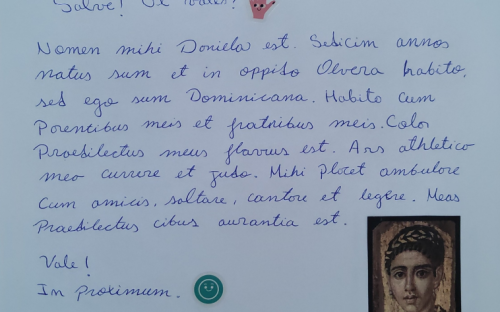 Salve! Ut vales?
Nomen mihi Doniela est. Sedicim annos
natus sum et in oppido Olvera habito,
sed ego sum Dominicana. Habito cum
Porentibus meis et fratribus meis. Color
Praedilectus meus flavus est. Ars athletico
meo currere et judo. Mihi Placet ambulore
cum amicis, saltare, cantore et legere. Meas
Praedilectus cibus aurantia est.
Vale!
In Proximum.